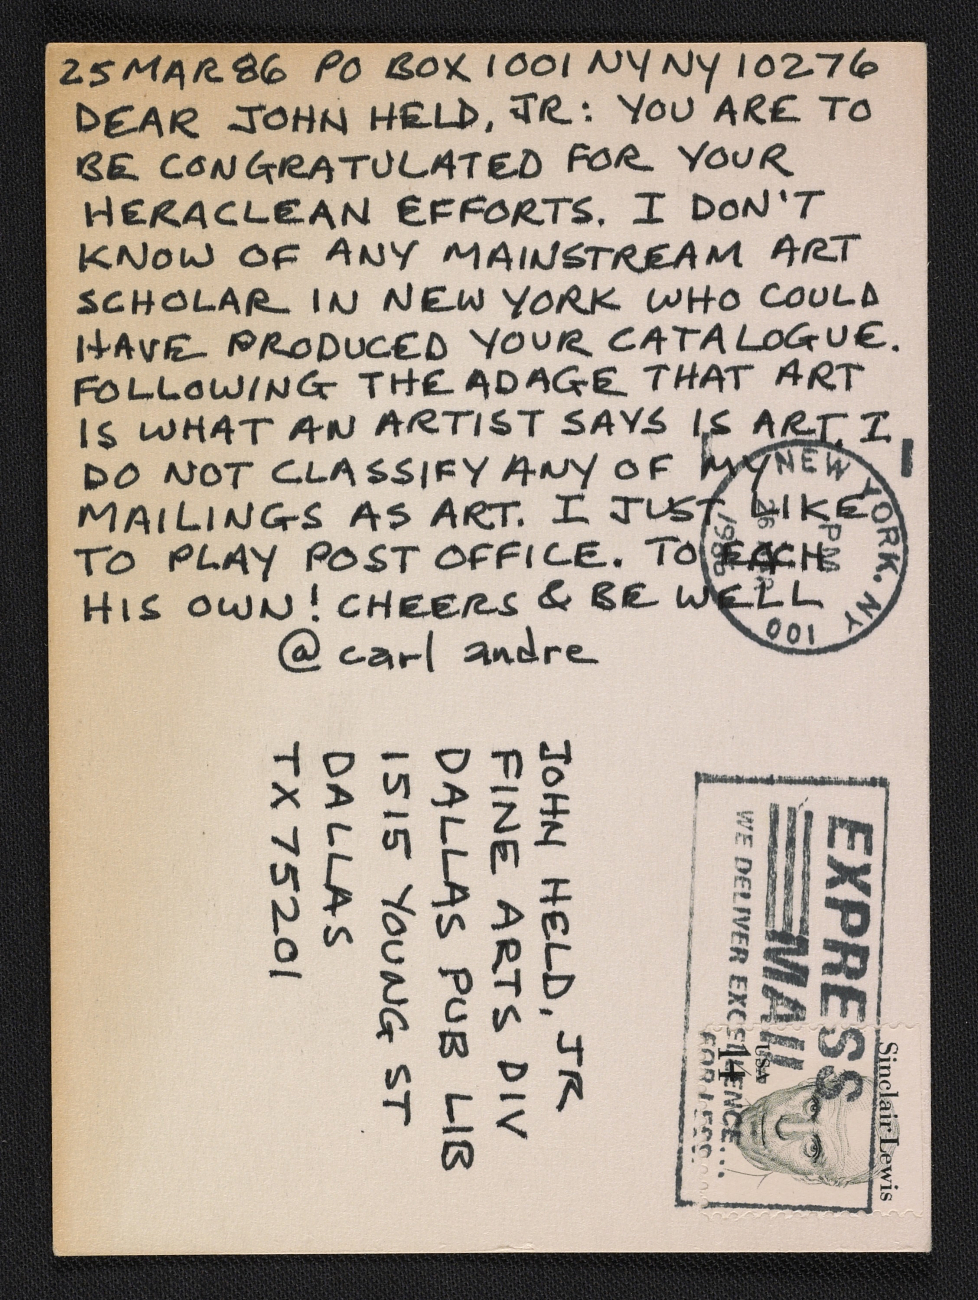 25 MAR 86 PO BOX 1001 NY NY 10276
DEAR JOHN HELD, JR: YOU ARE TO
BE CONGRATULATED FOR YOUR
HERACLEAN EFFORTS. I DON'T
KNOW OF ANY MAINSTREAM ART
SCHOLAR IN NEW YORK WHO COULD
HAVE PRODUCED YOUR CATALOGUE.
FOLLOWING THE ADAGE THAT ART
IS WHAT AN ARTIST SAYS IS ART, I
DO NOT CLASSIFY ANY OF MY
MAILINGS AS ART. I JUST LIKE
TO PLAY POST OFFICE. TO EACH
HIS OWN! CHEERS & BE WELL
@ carl andre
NEW YORK, NY
PM
26 MAR
1986
001
JOHN HELD, JR
FINE ARTS DIV
DALLAS PUB LIB
1515 YOUNG ST
DALLAS
TX 75201
EXPRESS
MAIL
WE DELIVER EXCELLENCE...
FOR LESS.
Sinclair Lewis
USA
14